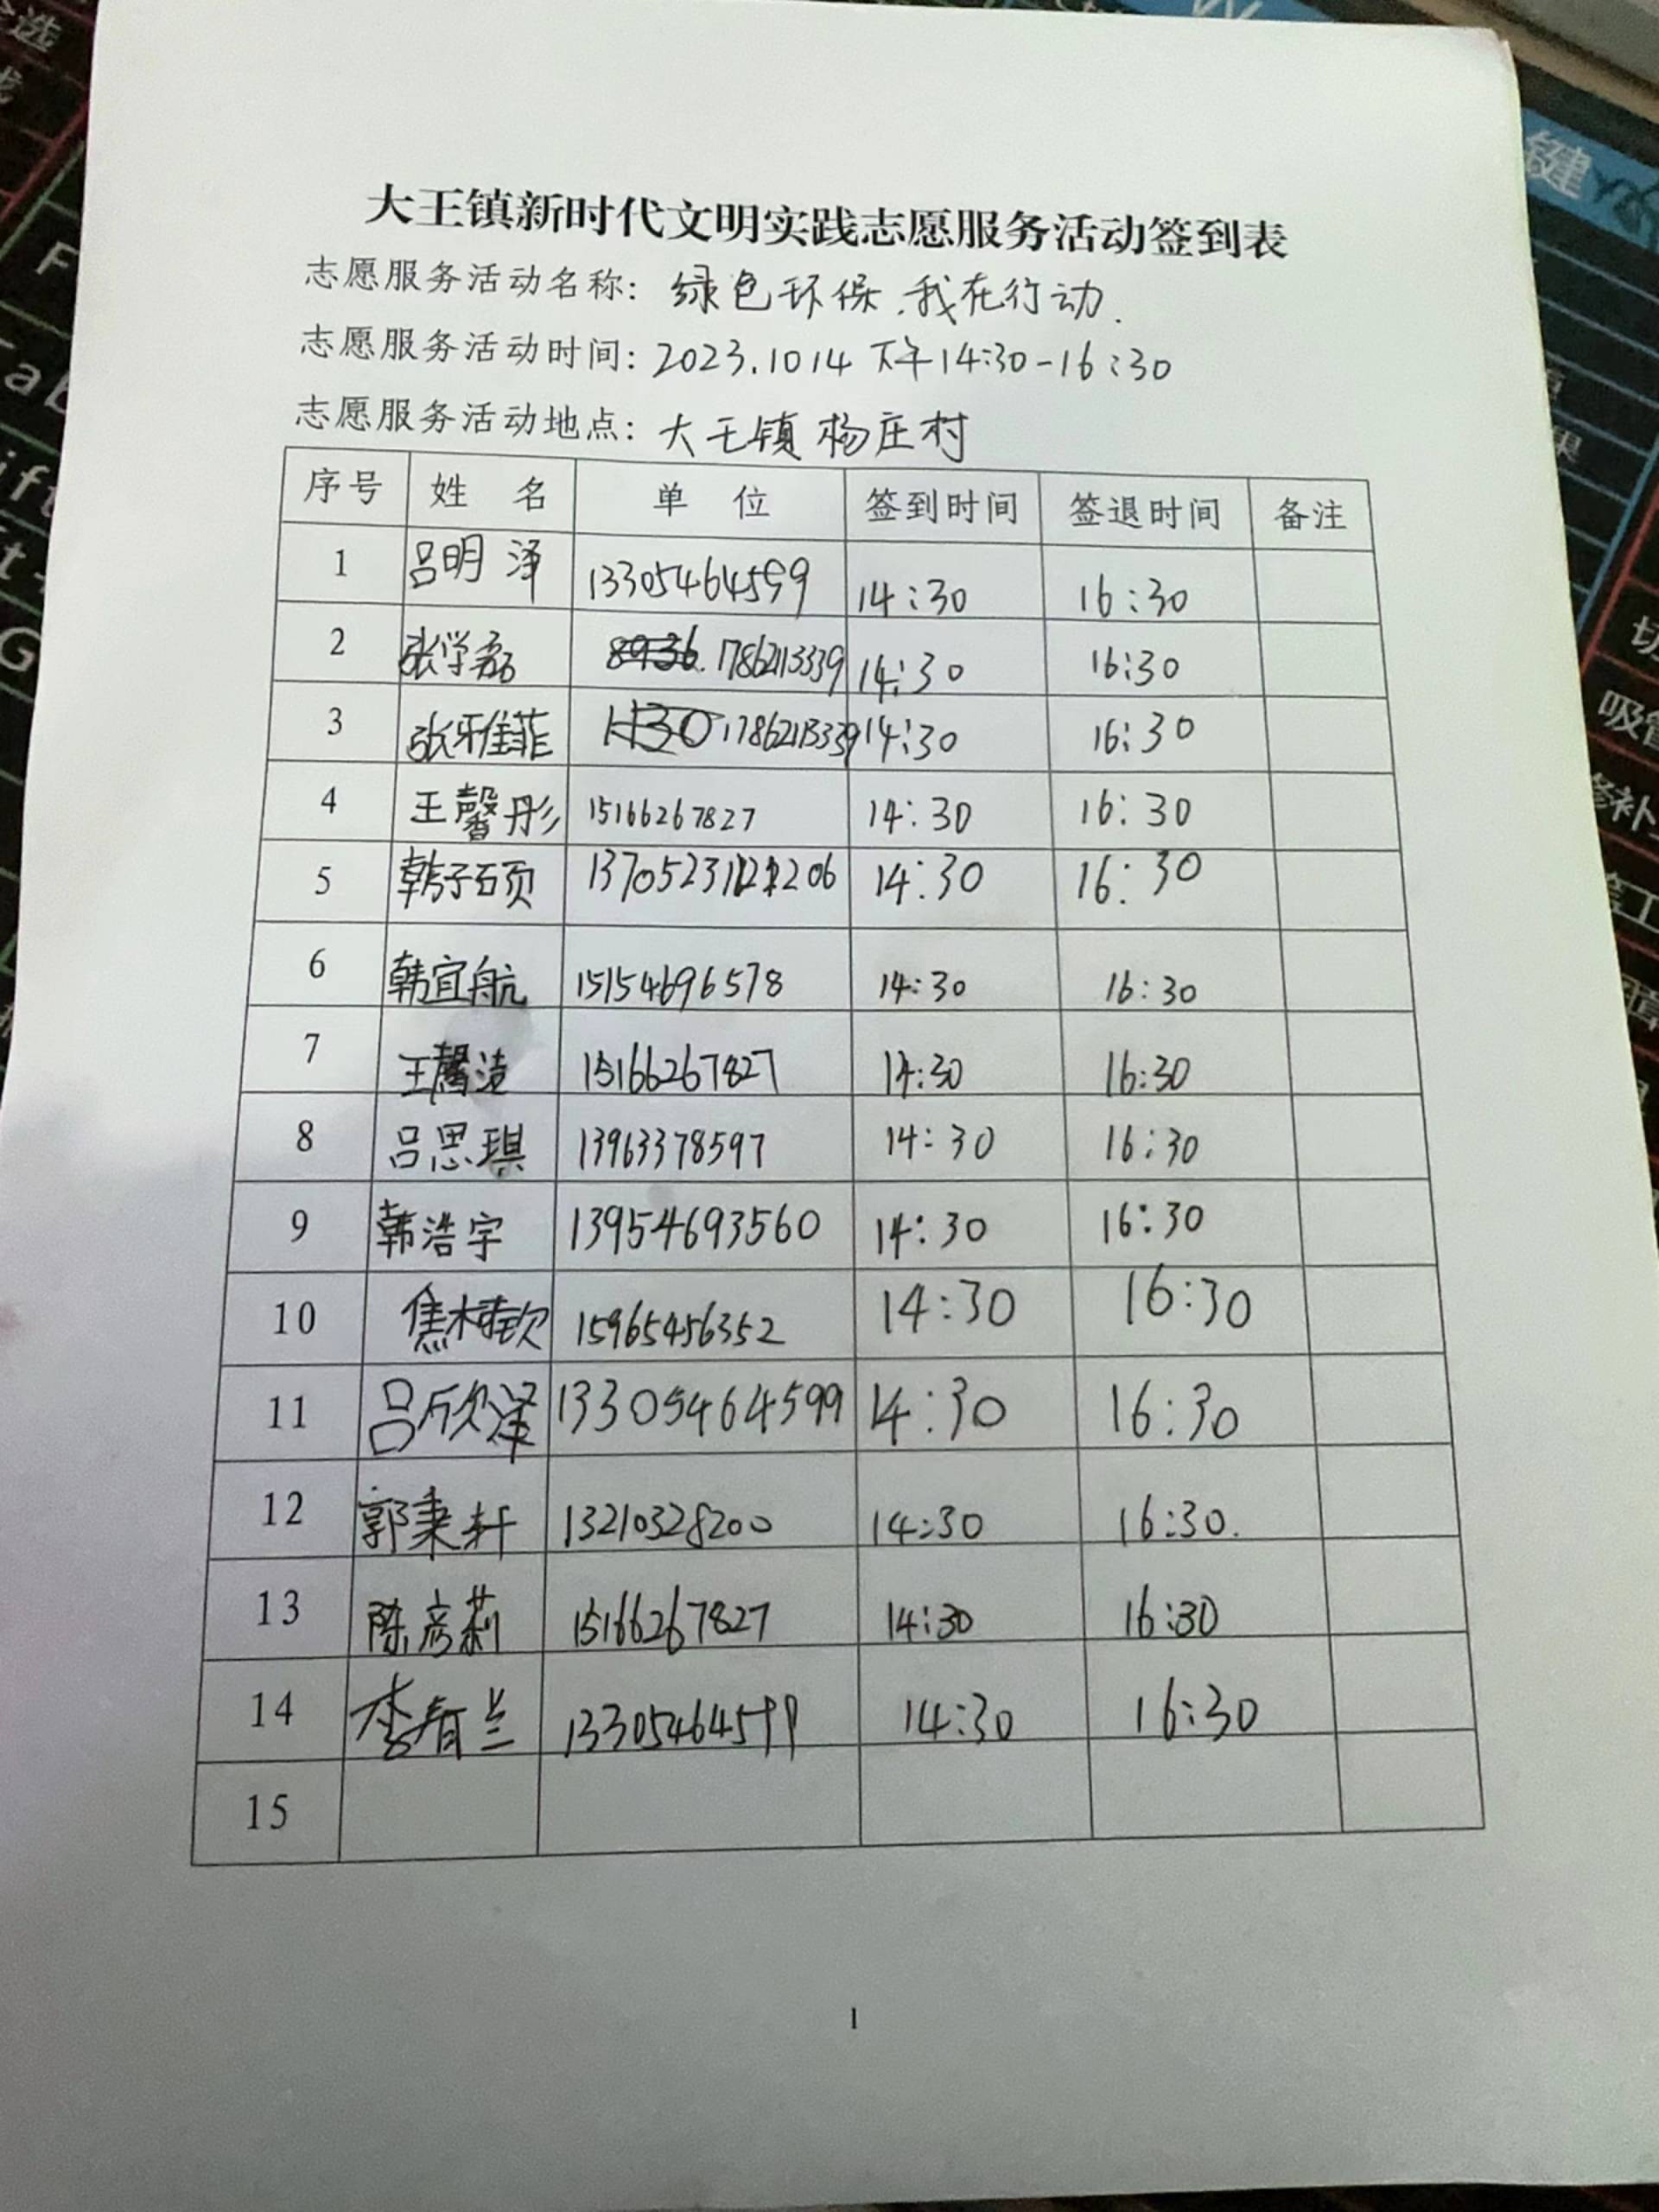 大王镇新时代文明实践志愿服务活动签到表
志愿服务活动名称: 绿色环保.我在行动.
志愿服务活动时间: 2023.1014 下午14:30-16:30
志愿服务活动地点: 大王镇杨庄村
序号 姓名 单位 签到时间 签退时间 备注
1 吕明泽 13305464599 14:30 16:30
2 张学磊 17862113339 14:30 16:30
3 张雅菲 14:30 16:30
4 王馨彤 15166267827 14:30 16:30
5 韩子硕 14:30 16:30
6 韩宜航 15154696578 14:30 16:30
7 王馨洁 15166267827 14:30 16:30
8 吕思琪 13963378597 14:30 16:30
9 韩浩宇 13954693560 14:30 16:30
10 焦梓钦 15965456352 14:30 16:30
11 吕欣泽 13305464599 14:30 16:30
12 郭秉轩 13210328200 14:30 16:30.
13 陈彦莉 15166267827 14:30 16:30
14 李春兰 13305464599 14:30 16:30
15
1